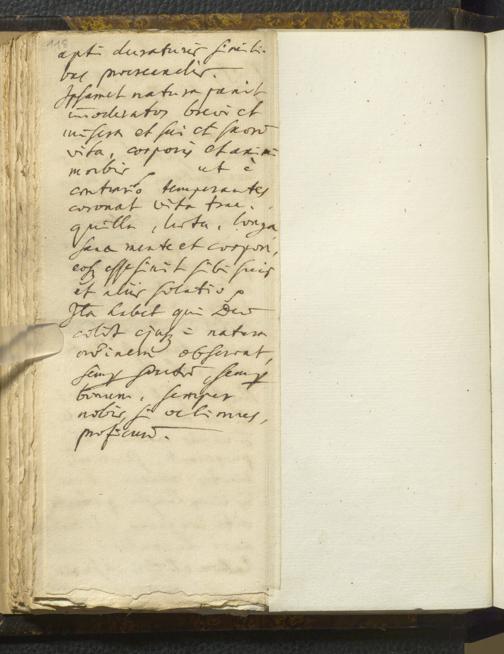 118
apti duraturis similibus
procreandis.
Ipsamet natura punit
immoderatos brevi et
misera et sui et suorum
vita, corporis et animi
morbis ut è
contrario temperantes
coronat vita tran-
quilla, laeta, longa
sana mente et corpore,
esse sibi suis
et aliis solatio.
Ita habet qui Deum
colit ejusque in natura
ordinem observat,
semper semper
bonum, semper
nobis,
proficuum.